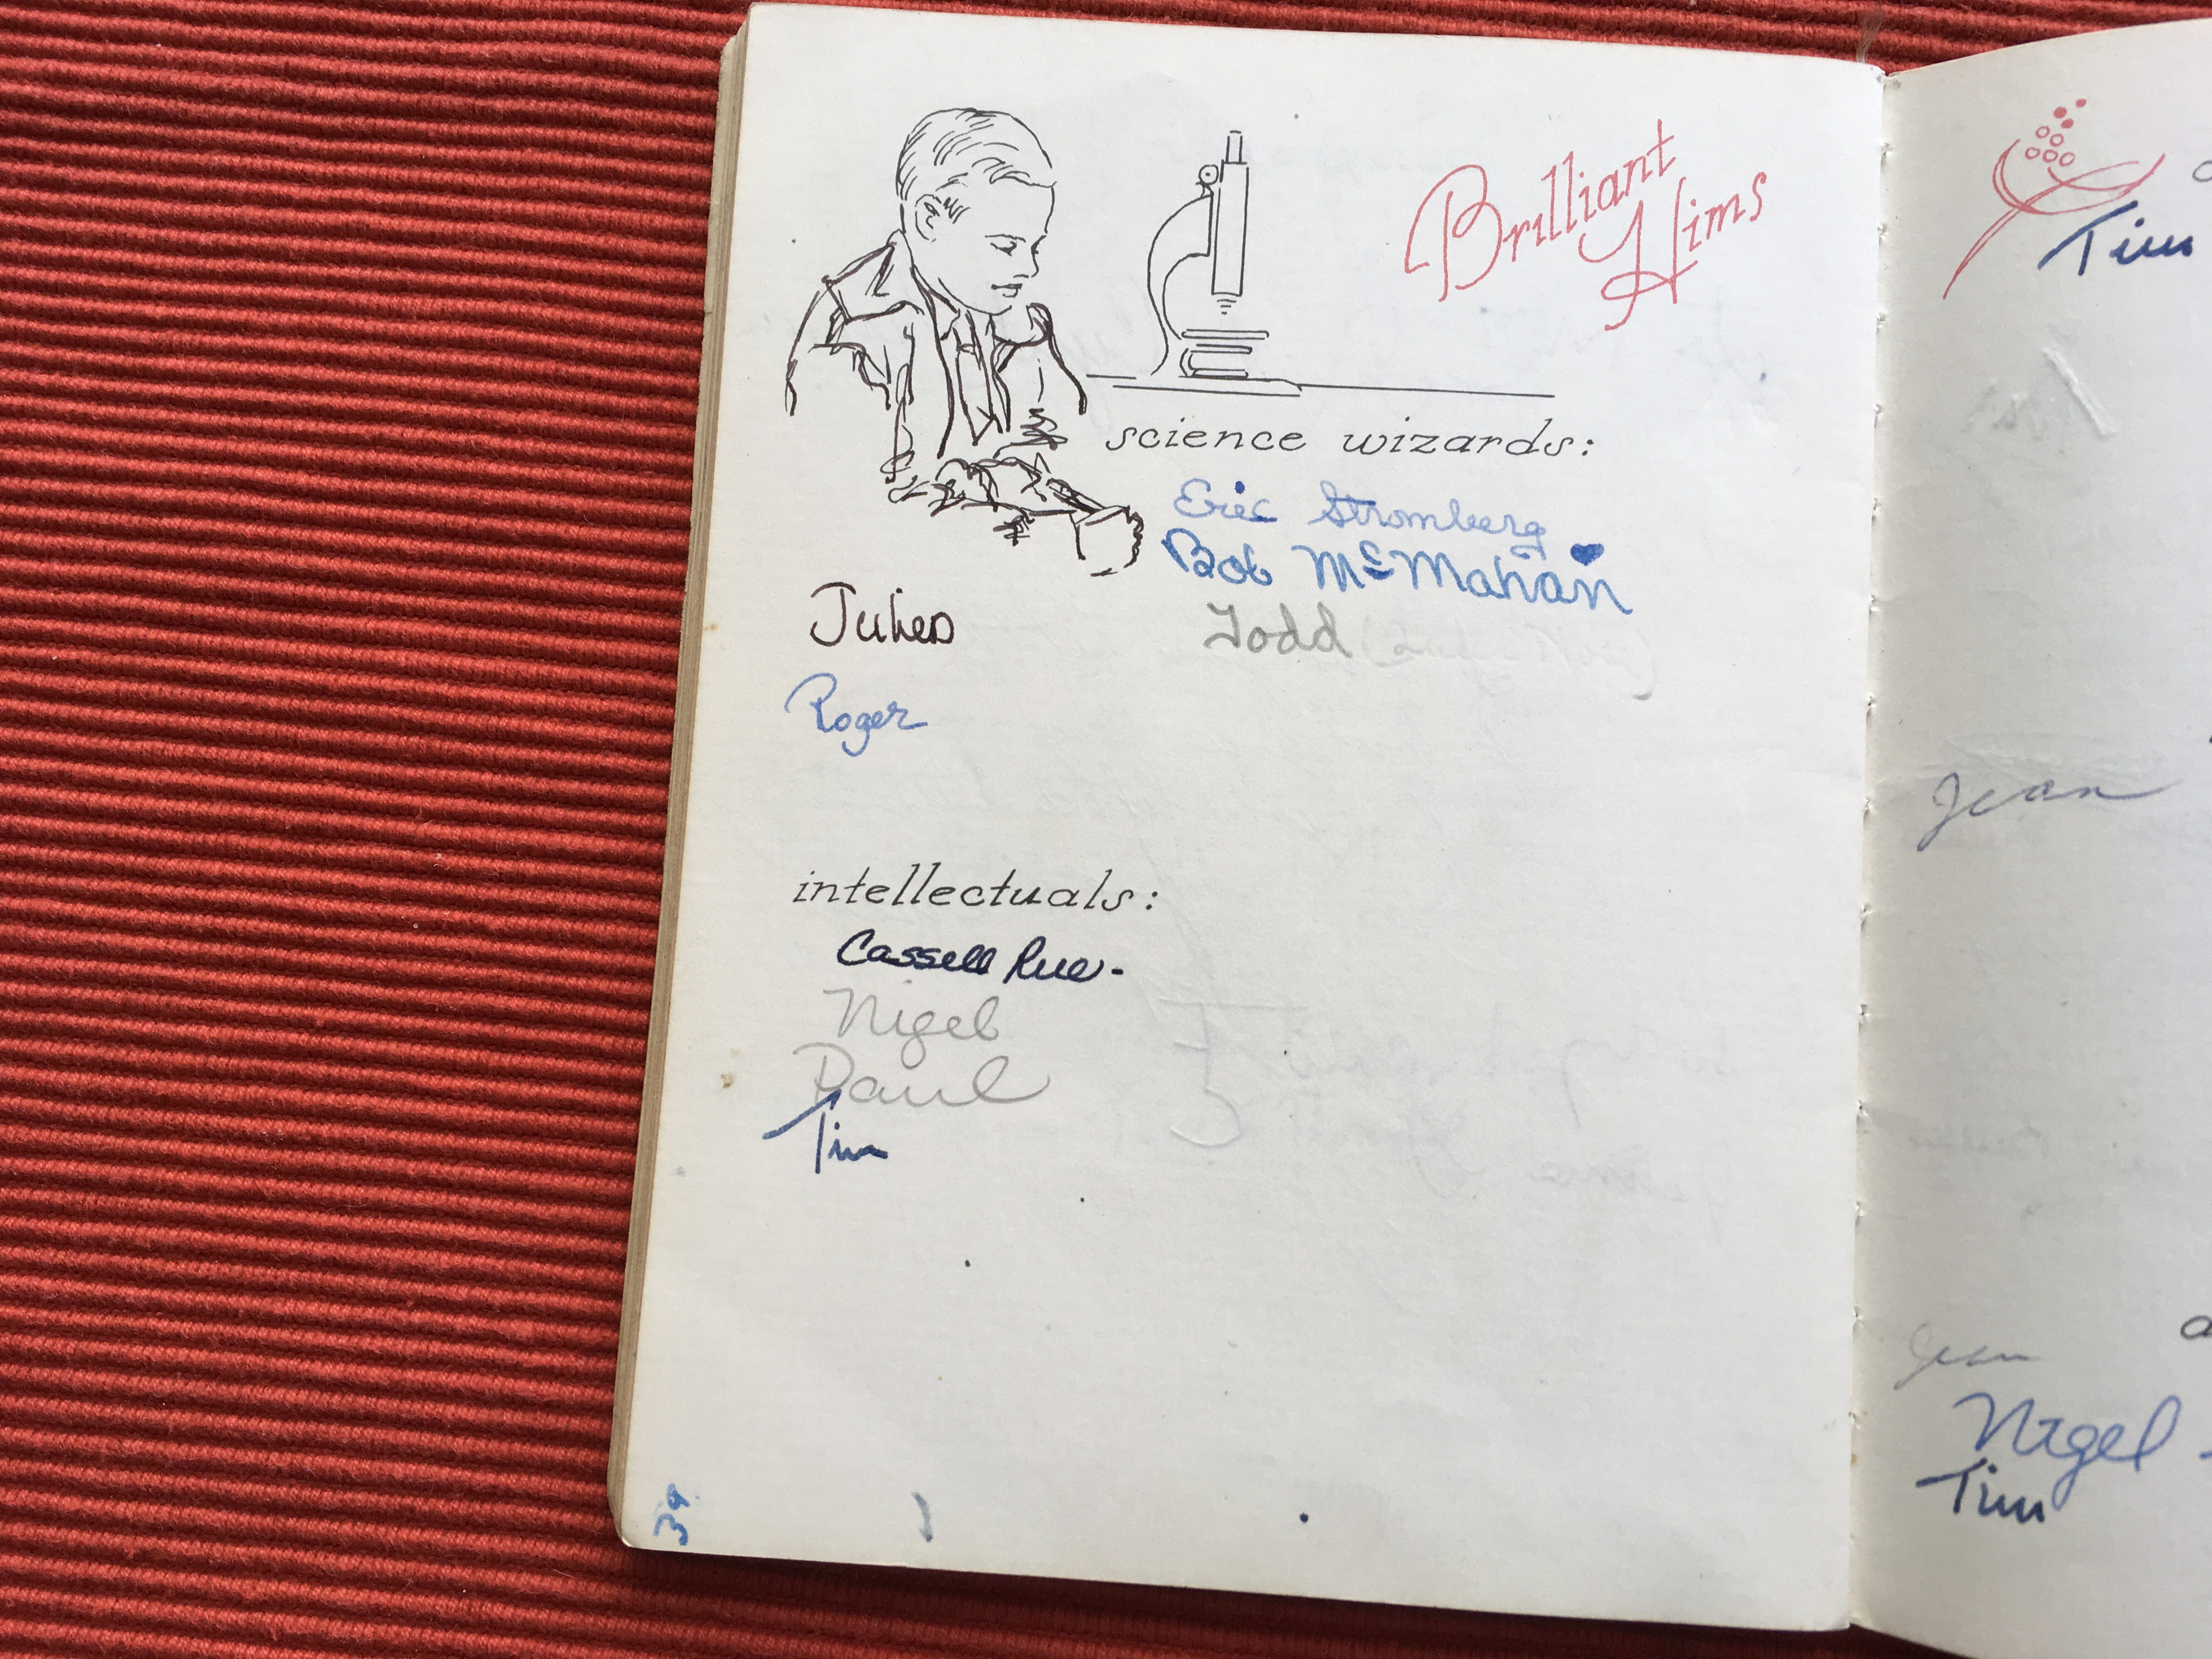 Brilliant
Hims
science wizards:
Eric Stromberg
Bob McMahan
Todd
Julies
Roger
intellectuals:
Cassell Rue-
Nigel
Paul
Tim
39
Tim
Jean
Jean
Nigel
Tim